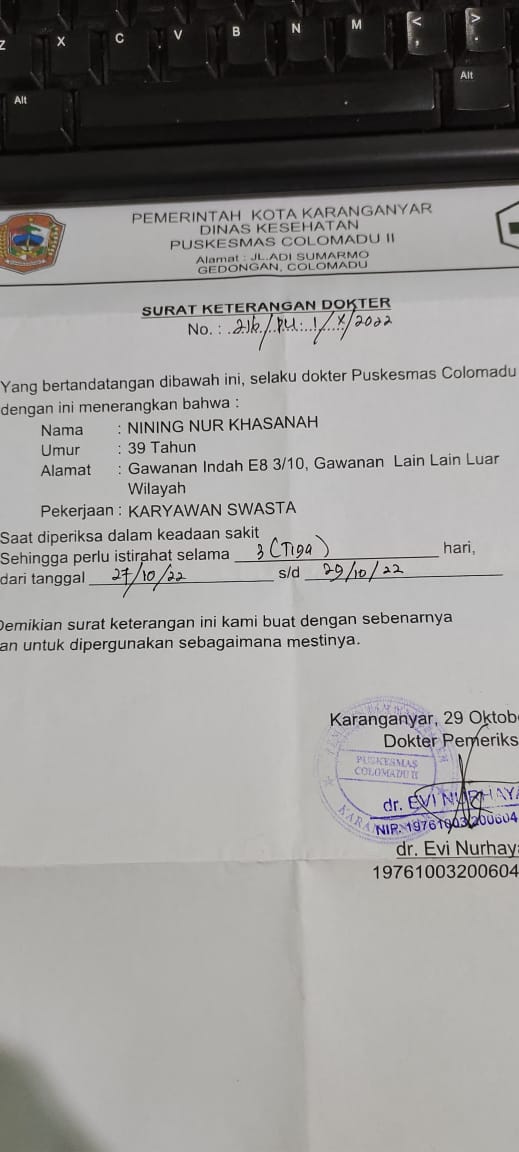 Z X C V B N M < , > .
Alt Alt
PEMERINTAH KOTA KARANGANYAR
DINAS KESEHATAN
PUSKESMAS COLOMADU II
Alamat : JL.ADI SUMARMO
GEDONGAN, COLOMADU
SURAT KETERANGAN DOKTER
No. : /X/2022
Yang bertandatangan dibawah ini, selaku dokter Puskesmas Colomadu
dengan ini menerangkan bahwa :
Nama : NINING NUR KHASANAH
Umur : 39 Tahun
Alamat : Gawanan Indah E8 3/10, Gawanan Lain Lain Luar
Wilayah
Pekerjaan : KARYAWAN SWASTA
Saat diperiksa dalam keadaan sakit
Sehingga perlu istirahat selama 3 (Tiga) hari,
dari tanggal 27/10/22 s/d 29/10/22
Demikian surat keterangan ini kami buat dengan sebenarnya
an untuk dipergunakan sebagaimana mestinya.
Karanganyar, 29 Oktob
Dokter Pemeriks
PUSKESMAS
COLOMADU II
dr. EVI NURHAYA
NIP. 19761003 200604
dr. Evi Nurhay
19761003200604